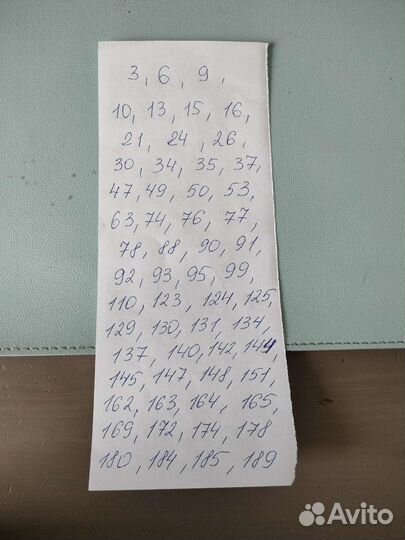 3, 6, 9,
10, 13, 15, 16,
21, 24, 26,
30, 34, 35, 37,
47, 49, 50, 53,
63, 74, 76, 77,
78, 88, 90, 91,
92, 93, 95, 99,
110, 123, 124, 125,
129, 130, 131, 134,
137, 140, 142, 144,
145, 147, 148, 151,
162, 163, 164, 165,
169, 172, 174, 178
180, 184, 185, 189
Avito